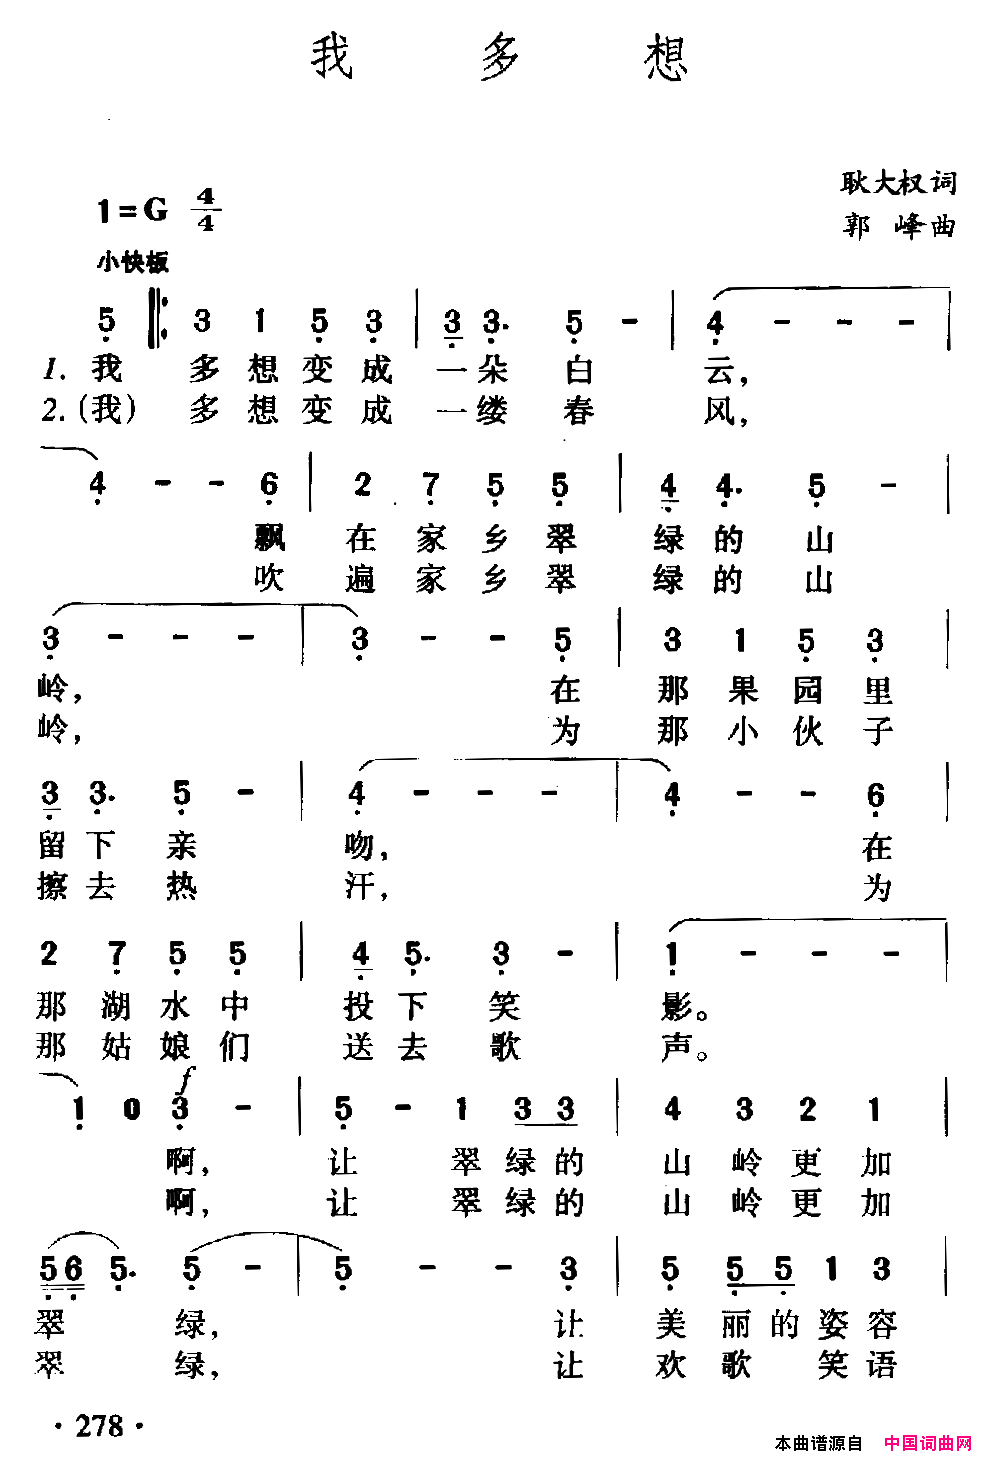 我 多 想
耿大权词
1=G 4/4
郭 峰曲
小快板
5 3 1 5 3 3 3. 5 - 4 - - -
1. 我 多 想 变 成 一 朵 白 云,
2. (我) 多 想 变 成 一 缕 春 风,
4 - - 6 2 7 5 5 4 4. 5 -
飘 在 家 乡 翠 绿 的 山
吹 遍 家 乡 翠 绿 的 山
3 - - - 3 - - 5 3 1 5 3
岭, 在 那 果 园 里
岭, 为 那 小 伙 子
3 3. 5 - 4 - - - 4 - - 6
留 下 亲 吻, 在
擦 去 热 汗, 为
2 7 5 5 4 5. 3 - 1 - - -
那 湖 水 中 投 下 笑 影。
那 姑 娘 们 送 去 歌 声。
f
1 0 3 - 5 - 1 3 3 4 3 2 1
啊, 让 翠 绿 的 山 岭 更 加
啊, 让 翠 绿 的 山 岭 更 加
5 6 5. 5 - 5 - - 3 5 5 5 1 3
翠 绿, 让 美 丽 的 姿 容
翠 绿, 让 欢 歌 笑 语
· 278 ·
本曲谱源自 中国词曲网